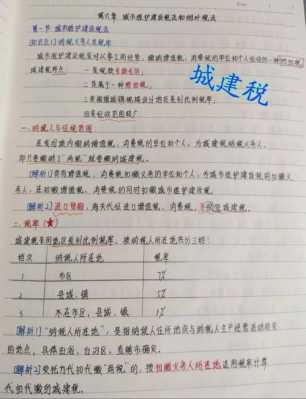 第六章 城市维护建设税法和烟叶税法
第一节 城市维护建设税法
[知识点1] 纳税义务人与税率
城市维护建设税是对从事工商经营，缴纳增值税、消费税的单位和个人征收的一种
城建税
城建税特点：一
二 属于一种附加税。
三 根据城镇规模设计地区差别比例税率。
四 征收范围较广
一、纳税人与征税范围
负有缴纳增值税、消费税的单位和个人，为城建税纳税义务人，
即只要缴纳了"两税"就要缴纳城建税。
[解析1] 增值税、消费税的扣缴义务人
人，在扣缴增值税、消费税的同时扣缴城市维护建设税。
[解析2] 进口货物，海关代征进口增值税、消费税，不征城建税。
二、税率（★）
城建税采用地区差别比例税率，按纳税人所在地共分三档：
档次 纳税人所在地 税率
1 市区 7%
2 县城、镇 5%
3 不在市区、县城、镇 1%
[解析1] "纳税人所在地"，是指纳税人住所地或与纳税人生产经营活动相关
的地点，具体由省、自治区、直辖市确定。
[解析2] 受托方代扣代缴"两税"的，按扣缴义务人所在地适用税率计算
代扣代缴的城建税。